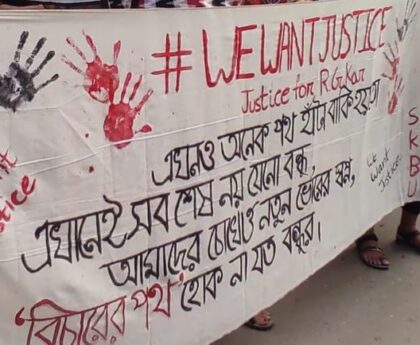 # WE WANT JUSTICE
Justice for R G Kar
এখনও অনেক পথ হাঁটা বাকি হয়তো
এখানেই সব শেষ নয় যেনো বন্ধু,
আমাদের চোখেও নতুন ভোরের স্বপ্ন,
'বিচারের পথ' হোক না যত বন্ধুর।
We
want
Justice
nt
stice
S
K
B